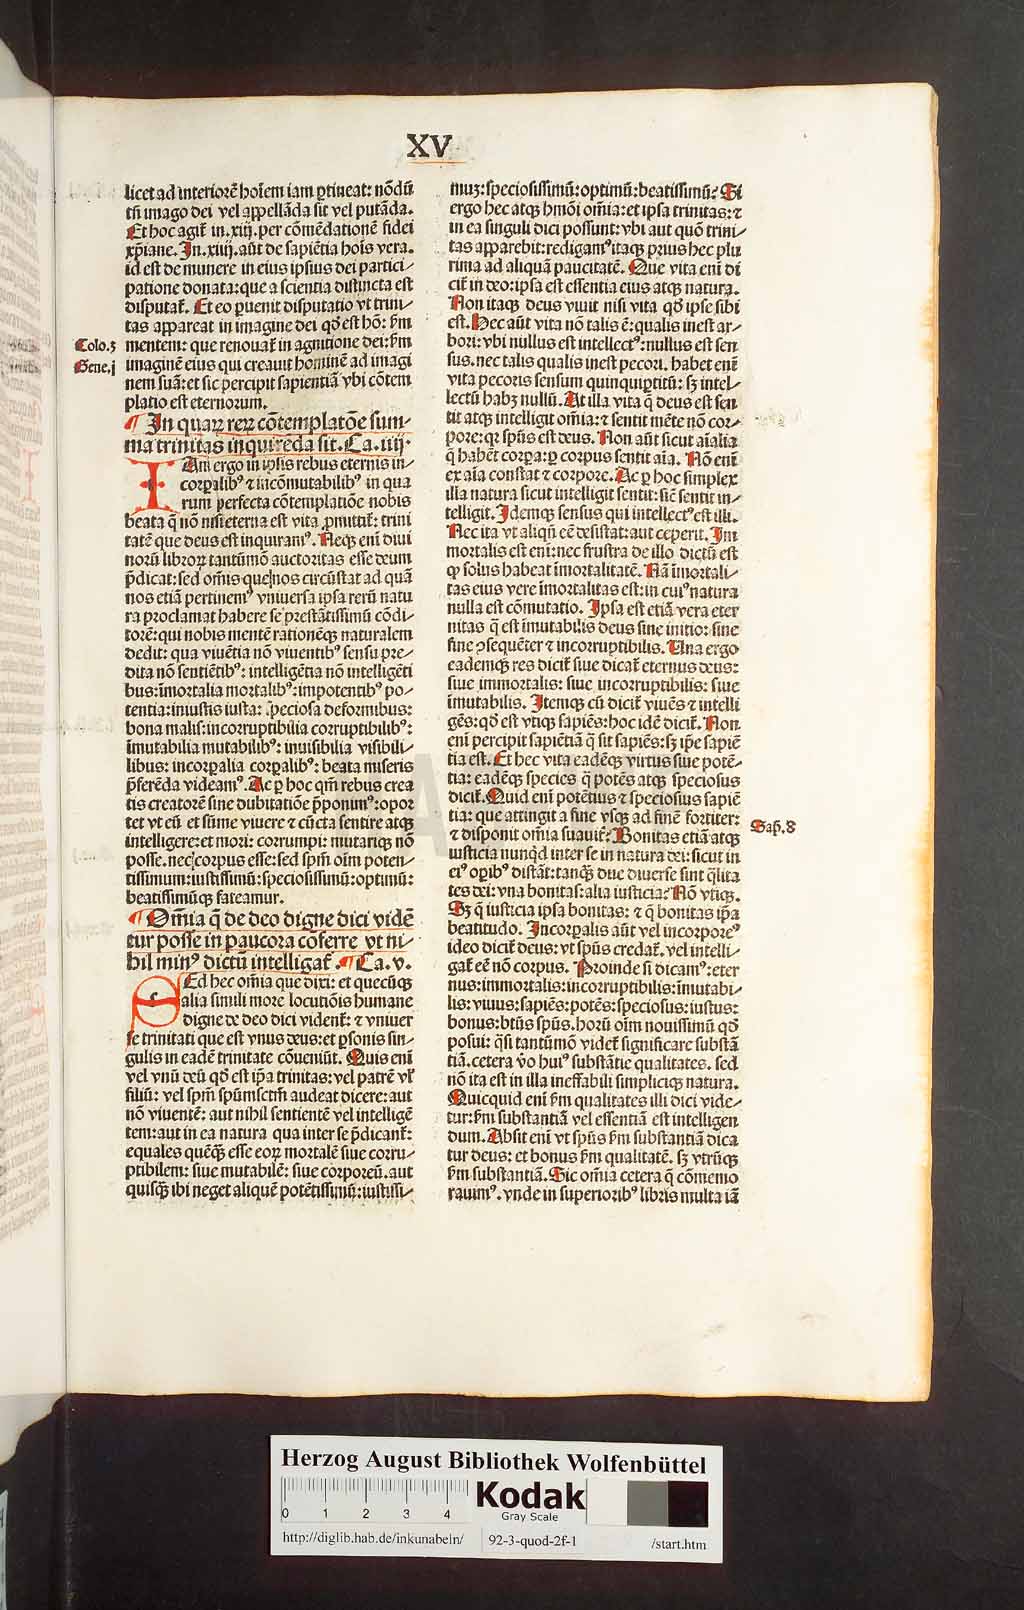 XV
licet ad interiorē hoīem iam ꝑtineat: nōdū
tn̄ imago dei vel appellāda sit vel putāda.
Et hoc agit̄ in .xiij. per cōmēdationē fidei
xp̄iane. In .xiiij. aūt de sapiētia hoīs vera.
id est de munere in eius ipsius dei partici⸗
patione donata: que a scientia distincta est
disputat̄. Et eo ꝑuenit disputatio vt trini⸗
tas appareat in imagine dei qď est hō: ẜm
Colo.3 mentem: que renouat̄ in agnitione dei: ẜm
Gene.j imaginē eius qui creauit hominē ad imagi
nem suā: et sic percipit sapientiā vbi cōtem
platio est eternorum.
¶ In quaꝝ reꝝ cōtemplatōe sum⸗
ma trinitas inquirēda sit. Ca. iiij.
IAm ergo in ipsis rebus eternis in⸗
corꝑalibꝰ ⁊ incōmutabilibꝰ in qua
rum perfecta cōtemplatiōe nobis
beata q̄ nō nisi eterna est vita ꝓmittit̄: trini
tatē que deus est inquiramꝰ. Neqꝫ enī diui
norū libroꝝ tantūmō auctoritas esse deum
p̄dicat: sed om̄is que nos circūstat ad quā
nos etiā pertinemꝰ vniuersa ipsa rerū natu
ra proclamat habere se prestātissimū cōdi⸗
torē: qui nobis mentē rationēqꝫ naturalem
dedit: qua viuētia nō viuentibꝰ sensu pre⸗
dita nō sentiētibꝰ: intelligētia nō intelligēti
bus: īmortalia mortalibꝰ: impotentibꝰ po⸗
tentia: iniustis iusta: speciosa deformibus:
bona malis: incorruptibilia corruptibilibꝰ:
īmutabilia mutabilibꝰ: inuisibilia visibili⸗
libus: incorꝑalia corꝑalibꝰ: beata miseris
p̄ferēda videamꝰ. Ac ꝑ hoc qm̄ rebus crea
tis creatorē sine dubitatiōe p̄ponimꝰ: opor
tet vt eū et sūme viuere ⁊ cūcta sentire atqꝫ
intelligere: et mori: corrumpi: mutariqꝫ nō
posse. nec corpus esse: sed spm̄ oīm poten⸗
tissimum: iustissimū: speciosissimū: optimū:
beatissimūqꝫ fateamur.
¶ Om̄ia q̄ de deo digne dici vidē
tur posse in paucora cōferre vt ni⸗
hil minꝰ dictū intelligat̄. ¶ Ca. v.
SEd hec om̄ia que dixi: et quecūqꝫ
alia simili more locutiōis humane
digne de deo dici vident̄: ⁊ vniuer
se trinitati que est vnus deus: et ꝑsonis sin⸗
gulis in eadē trinitate cōueniūt. Quis enī
vel vnū deū qď est ip̄a trinitas: vel patrē vl̄
filiū: vel spm̄ spūmsctm̄ audeat dicere: aut
nō viuentē: aut nihil sentientē vel intelligē
tem: aut in ea natura qua inter se p̄dicant̄:
equales quēqꝫ esse eoꝝ mortalē siue corru⸗
ptibilem: siue mutabilē: siue corporeū. aut
quisqꝫ ibi neget aliquē potētissimū: iustissi⸗
muꝫ: speciosissimū: optimū: beatissimū? Si
ergo hec atqꝫ hmōi om̄ia: et ipsa trinitas: ⁊
in ea singuli dici possunt: vbi aut quō trini⸗
tas apparebit: redigamꝰ itaqꝫ prius hec plu
rima ad aliquā paucitatē. Que vita enī di
cit̄ in deo: ipsa est essentia eius atqꝫ natura.
Non itaqꝫ deus viuit nisi vita qď ipse sibi
est. Hec aūt vita nō talis ē: qualis inest ar⸗
bori: vbi nullus est intellectꝰ: nullus est sen
sus. nec talis qualis inest pecori. habet enī
vita pecoris sensum quinquiꝑtitū: sꝫ intel⸗
lectū habꝫ nullū. At illa vita q̄ deus est sen
tit atqꝫ intelligit om̄ia: ⁊ sentit mēte nō cor⸗
pore: qꝛ spūs est deus. Non aūt sicut aīalia
q̄ habēt corꝑa: ꝑ corpus sentit aīa. Nō enī
ex aīa constat ⁊ corpore. Ac ꝑ hoc simplex
illa natura sicut intelligit sentit: sic̄ sentit in⸗
telligit. Idemqꝫ sensus qui intellectꝰ est illi.
Nec ita vt aliqn̄ eē desistat: aut ceperit. Im
mortalis est enī: nec frustra de illo dictū est
ꝙ solus habeat īmortalitatē. Nā īmortali⸗
tas eius vere īmortalitas est: in cuiꝰ natura
nulla est cōmutatio. Ipsa est etiā vera eter
nitas q̄ est īmutabilis deus sine initio: sine
fine ꝯsequēter ⁊ incorruptibilis. Una ergo
eademqꝫ res dicit̄ siue dicat̄ eternus deus:
siue immortalis: siue incorruptibilis: siue
īmutabilis. Itemqꝫ cū dicit̄ viuēs ⁊ intelli
gēs: qď est vtiqꝫ sapiēs: hoc idē dicit̄. Non
enī percipit sapiētiā q̄ sit sapiēs: sꝫ ip̄e sapiē
tia est. Et hec vita eadēqꝫ virtus siue potē⸗
tia: eadēqꝫ species q̄ potēs atqꝫ speciosus
dicit̄. Quid enī potētius ⁊ speciosius sapiē
tia: que attingit a fine vsqꝫ ad finē fortiter:
⁊ disponit om̄ia suauit̄? Bonitas etiā atqꝫ Sap̄.8
iusticia nunqd̄ inter se in natura dei: sicut in
eiꝰ oꝑibꝰ distāt: tanqꝫ due diuerse sint q̄lita
tes dei: vna bonitas: alia iusticia? Nō vtiqꝫ.
Sꝫ q̄ iusticia ipsa bonitas: ⁊ q̄ bonitas ip̄a
beatitudo. Incorꝑalis aūt vel incorporeꝰ
ideo dicit̄ deus: vt spūs credat̄. vel intelli⸗
gat̄ eē nō corpus. Proinde si dicamꝰ: eter
nus: immortalis: incorruptibilis: īmutabi⸗
lis: viuus: sapiēs: potēs: speciosus: iustus:
bonus: btūs spūs. horū oīm nouissimū qď
posui: q̄si tantūmō videt̄ significare substā
tiā. cetera v̄o huiꝰ substātie qualitates. sed
nō ita est in illa ineffabili simpliciqꝫ natura.
Quicquid enī ẜm qualitates illi dici vide⸗
tur: ẜm substantiā vel essentiā est intelligen
dum. Absit enī vt spūs ẜm substantiā dica
tur deus: et bonus ẜm qualitatē. sꝫ vtrūqꝫ
ẜm substantiā. Sic om̄ia cetera q̄ cōmemo
rauimꝰ. vnde in superioribꝰ libris multa iā
Herzog August Bibliothek Wolfenbüttel
0 1 2 3 4
Kodak
Gray Scale
http://diglib.hab.de/inkunabeln/ 92-3-quod-2f-1 /start.htm